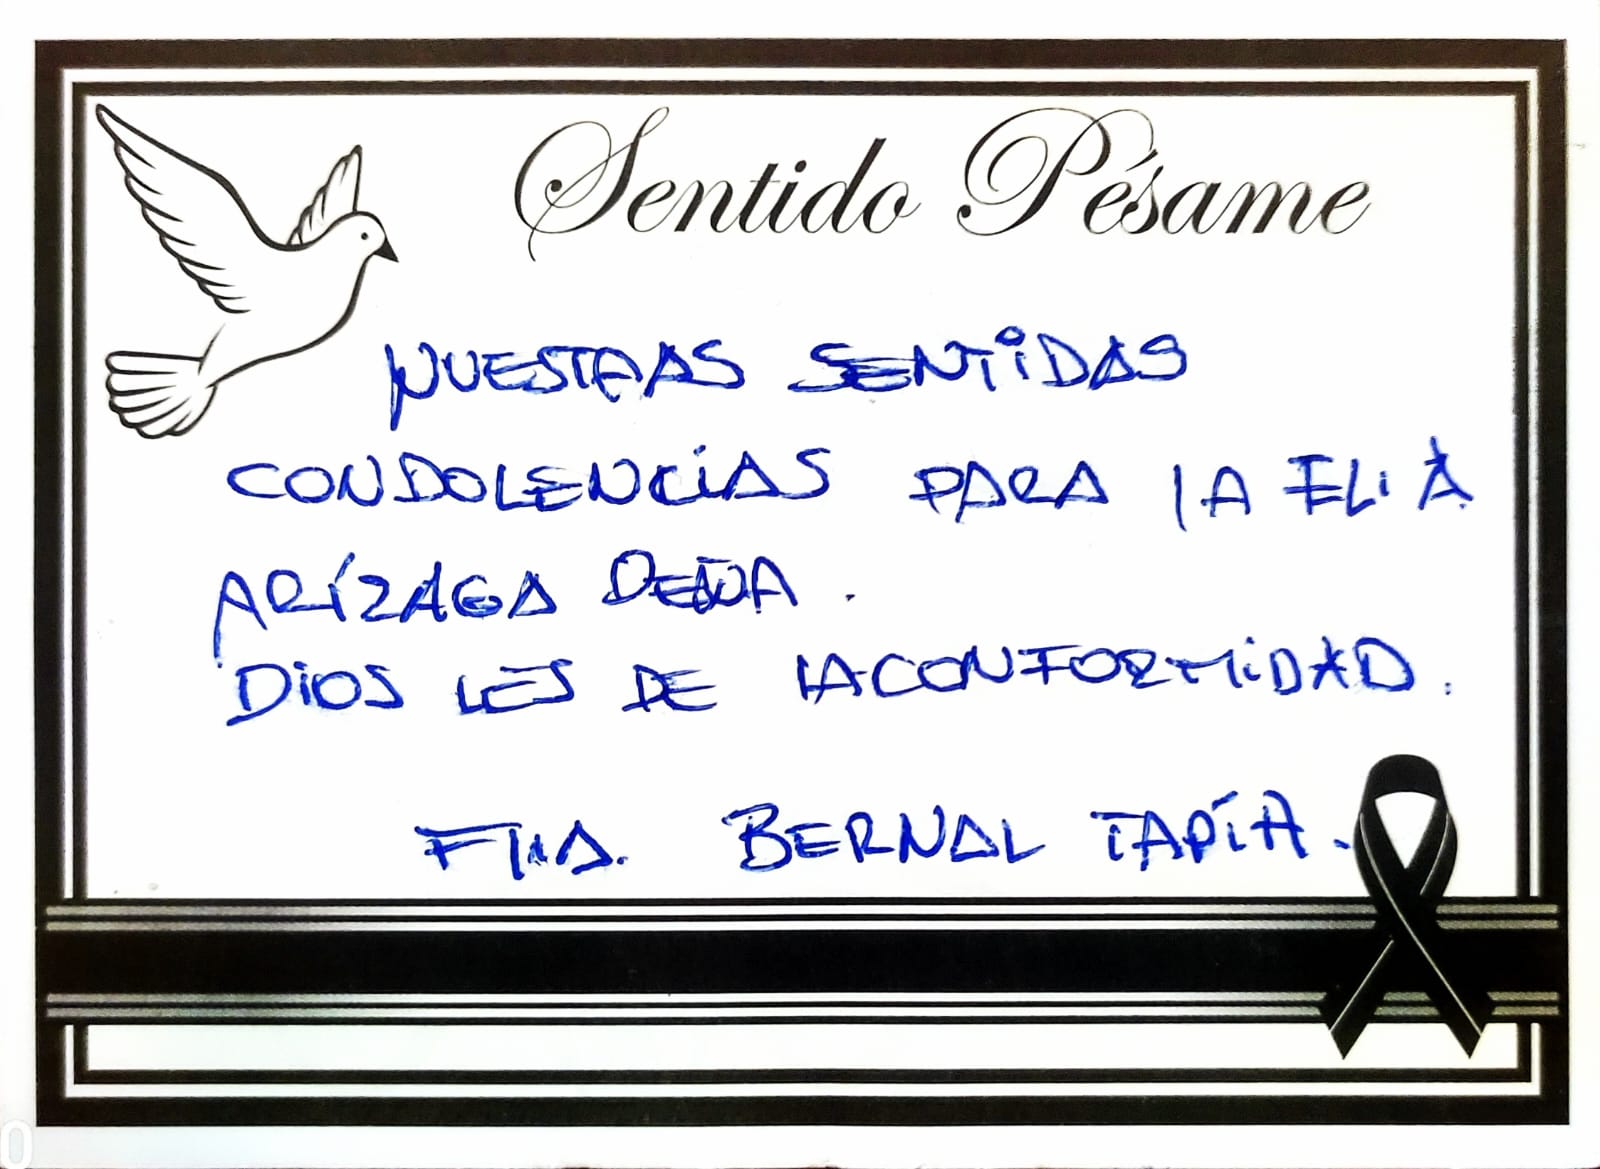 Sentido Pésame
NUESTRAS SENTIDAS
CONDOLENCIAS PARA LA
ARÍZAGA
DIOS LES DE LA CONFORMIDAD.
BERNAL TAPIA.